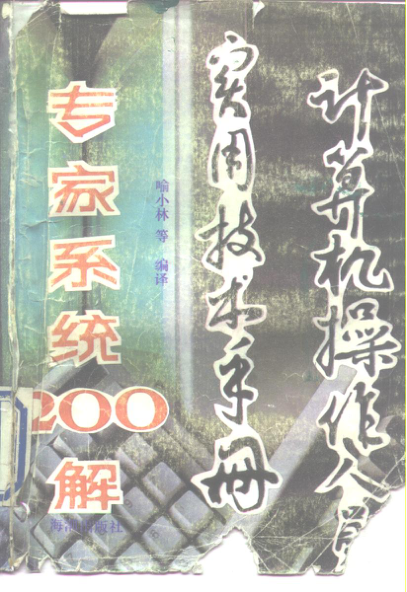 计算机操作人员
实用技术手册
喻小林 等 编译
专家系统200解
海洋出版社